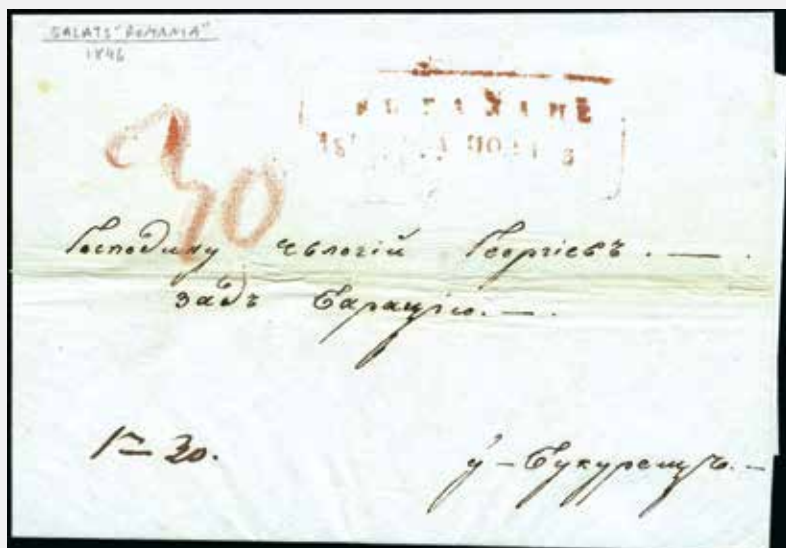 GALATS "ROMANIA"
1846
30
Господину Евлогій Георгіевъ. —.
задъ Барацію. —.
30.
у – Букурещъ. –